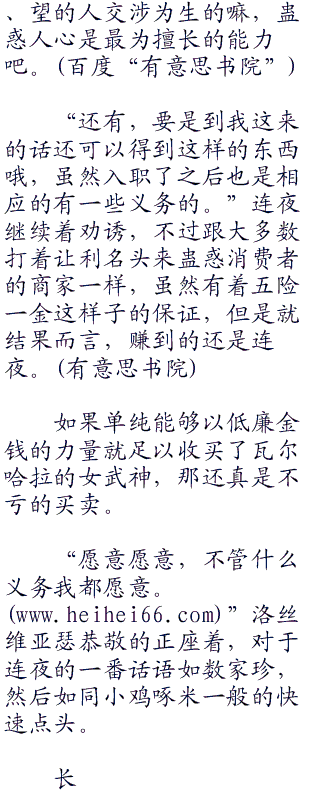 、望的人交涉为生的嘛，蛊
惑人心是最为擅长的能力
吧。(百度“有意思书院”)
“还有，要是到我这来
的话还可以得到这样的东西
哦，虽然入职了之后也是相
应的有一些义务的。”连夜
继续着劝诱，不过跟大多数
打着让利名头来蛊惑消费者
的商家一样，虽然有着五险
一金这样子的保证，但是就
结果而言，赚到的还是连
夜。(有意思书院)
如果单纯能够以低廉金
钱的力量就足以收买了瓦尔
哈拉的女武神，那还真是不
亏的买卖。
“愿意愿意，不管什么
义务我都愿意。
(www.heihei66.com)”洛丝
维亚瑟恭敬的正座着，对于
连夜的一番话语如数家珍，
然后如同小鸡啄米一般的快
速点头。
长